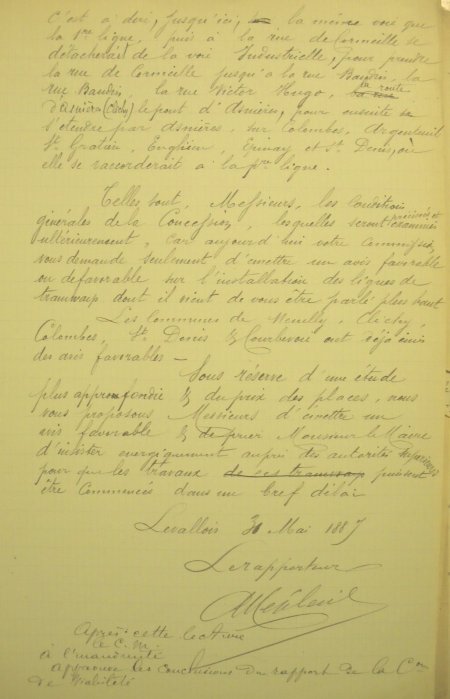 C'est à dire, jusqu'ici, la même voie que
la 1re ligne, puis à la rue de Cormeille se
détacherait de la voie Industrielle, pour prendre
la rue de Cormeille jusqu'à la rue Baudin, la
rue Baudin, la rue Victor Hugo, la route
d'Asnières (Clichy) le pont d'Asnières, pour ensuite
s'étendre par Asnières, sur Colombes, Argenteuil
St Gratien, Enghien, Epinay et St Denis, où
elle se raccorderait à la 1re ligne.
Telles sont, Messieurs, les conditions
générales de la Concession, lesquelles seront précisées et examinées
ultérieurement, car aujourd'hui votre Commission
vous demande seulement d'émettre un avis favorable
ou défavorable sur l'installation des lignes de
tramways dont il vient de vous être parlé plus haut
Les Communes de Neuilly, Clichy,
Colombes, St Denis & Courbevoie ont déjà émis
des avis favorables –
Sous réserve d'une étude
plus approfondie & du prix des places, nous
vous proposons Messieurs d'émettre un
avis favorable & de prier Monsieur le Maire
d'insister énergiquement auprès des autorités supérieures
pour que les travaux de ces tramways puissent
être commencés dans un bref délai
Levallois 30 Mai 1887
Le rapporteur
Après cette lecture
le C. M.
à l'unanimité
approuve les conclusions du rapport de la Con
de Viabilité